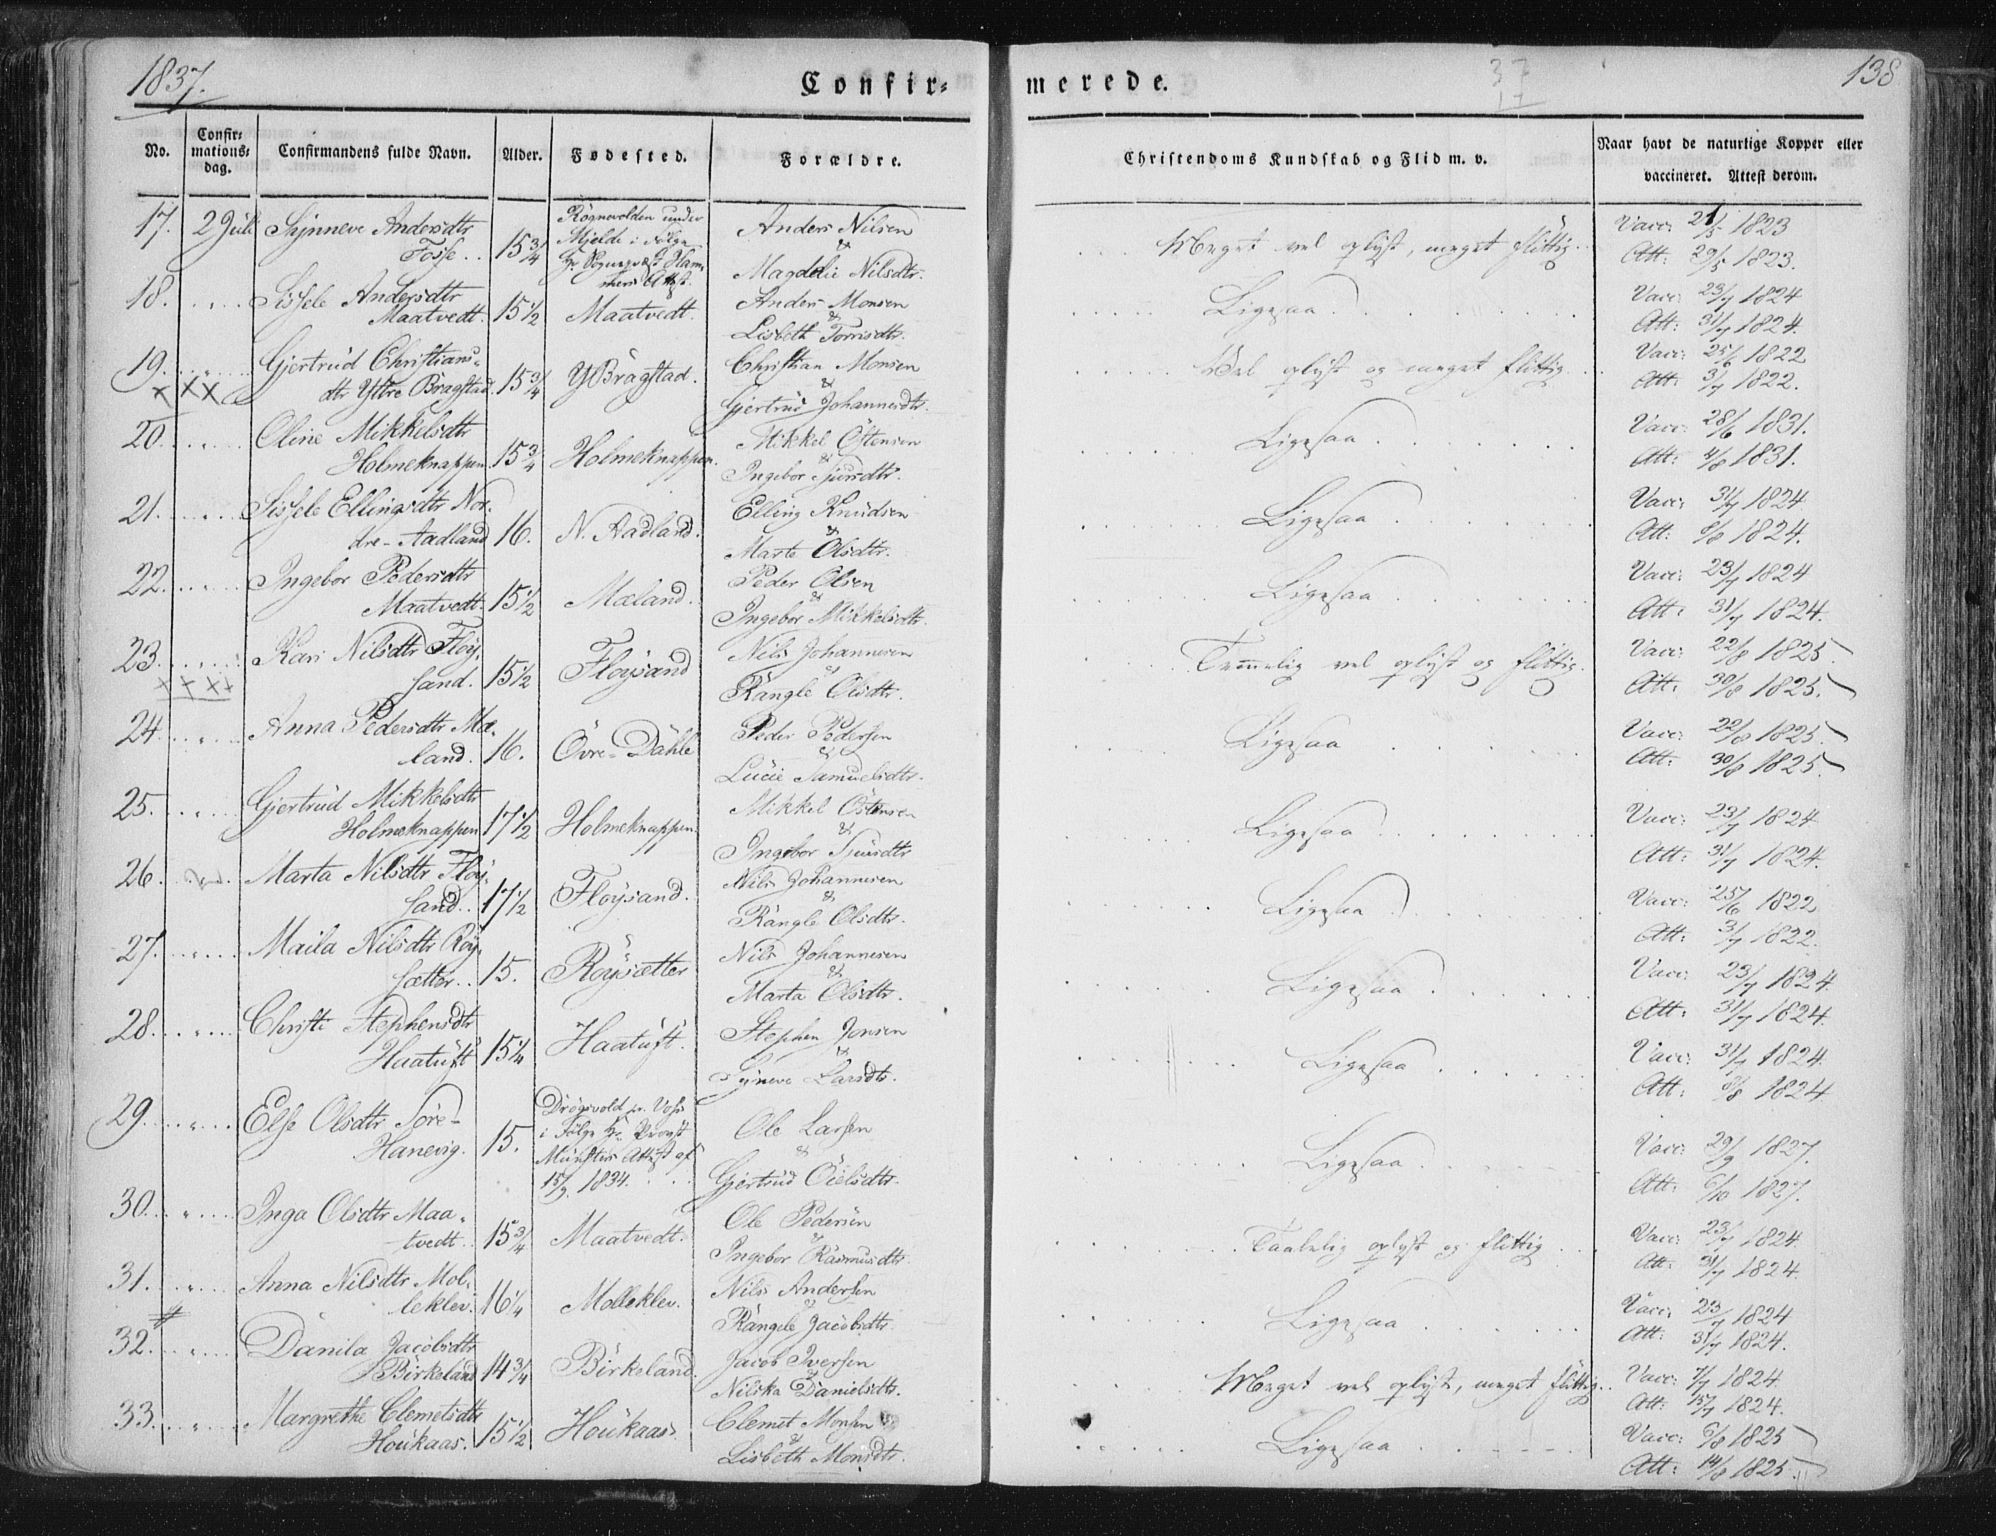 1837.
Confir=
merede.
37
17
138
No.
Confir=
mations=
dag.
Confirmandens fulde Navn.
Alder.
Fødested.
Forældre.
Christendoms Kundskab og Flid m. v.
Naar havt de naturlige Kopper eller
vaccineret. Attest derom.
17. 2 Juli Synneve Andersdtr Anders Nilsen Vacc: 21/5 1823
Fosse.. 15 3/4 Mjelde i Følge & Meget vel oplyst, meget flittig. Att: 29/5 1823.
Magdeli Nilsdtr.
18. Sissele Andersdtr Anders Monsen Vacc: 23/7 1824
Maatvedt. 15 1/2 Maatvedt. & Ligesaa Att: 31/7 1824.
Lisbeth Torrisdtr.
19. Gjertrud Christians= Christian Monsen Vacc: 25/6 1822
dtr Ytre Bragstad. 15 3/4 Y Bragstad. & Vel oplyst og meget flittig Att: 3/7 1822.
xxx Gjertrud Johannesdtr.
20. Oline Mikkelsdtr Mikkel Østensen Vacc: 28/6 1831.
Holmeknappen 15 3/4 Holmeknappen. & Ligesaa Att: 4/8 1831.
Ingebor Sjursdtr.
21. Sissele Ellingsdtr Nor= Elling Knudsen Vacc: 31/7 1824.
dre-Aadland 16. N. Aadland. & Ligesaa Att: 8/8 1824.
Marte Olsdtr.
22. Ingebor Pedersdtr Peder Olsen Vacc: 23/7 1824
Maatvedt. 15 1/2 Mæland. & Ligesaa Att: 31/7 1824.
Ingebor Mikkelsdtr.
23. Kari Nilsdtr Fløy= Nils Johannesen Vacc: 22/8 1825.
sand. 15 1/2 Fløysand & Temmelig vel oplyst og flittig. Att: 30/8 1825.
Rangle Olsdtr.
24. Anna Pedersdtr Mæ= Peder Pedersen Vacc: 22/8 1825.
land. 16. Øvre-Dahle & Ligesaa Att: 30/8 1825.
Lucie Samuelsdtr.
25. Gjertrud Mikkelsdtr Mikkel Østensen Vacc: 23/7 1824
Holmeknappen 17 1/2 Holmeknappen & Ligesaa Att: 31/7 1824.
Ingebor Sjursdtr
26. Marta Nilsdtr Fløy= Nils Johannesen Vacc: 25/6 1822
sand.. 17 1/2 Fløysand. & Ligesaa Att: 3/7 1822.
Rangle Olsdtr.
27. Maila Nilsdtr Røy= Nils Johannesen Vacc: 23/7 1824.
sætter.. 15. Røysætter & Ligesaa Att: 31/7 1824.
Marta Olsdtr.
28. Christi Stephensdtr Stephen Jonsen Vacc: 31/7 1824.
Haatuft 15 1/4 Haatuft. & Ligesaa Att: 8/8 1824.
Synneve Larsdtr.
29. Else Olsdtr Søre- Ole Larsen Vacc: 29/9 1827.
Hanevig. 15. i Følge Hr. Provst & Ligesaa Att: 6/10 1827.
Münsters Attest af
15/9. 1834. Gjertrud
30. Inga Olsdtr Maa= Ole Pedersen Vacc: 23/7 1824.
tvedt.. 15 3/4 Maatvedt. & Taalelig oplyst og flittig Att: 31/7 1824.
Ingebor Rasmusdtr.
31. Anna Nilsdtr Mol= Nils Andersen Vacc: 23/7 1824
leklev. 16 1/4 Molleklev. & Ligesaa Att: 31/7 1824.
Rangele Jacobsdtr.
32. Danila Jacobsdtr Jacob Iversen Vacc: 7/7 1824.
Birkeland 14 3/4 Birkeland. & Meget vel oplyst, meget flittig.. Att: 15/7 1824.
Nilska Danielsdtr.
33. Margrethe Clemetsdtr Clemet Monsen Vacc: 6/8 1825
Houkaas. 15 1/2 Houkaas. & Ligesaa Att: 14/8 1825.
Lisbeth Monsdtr.